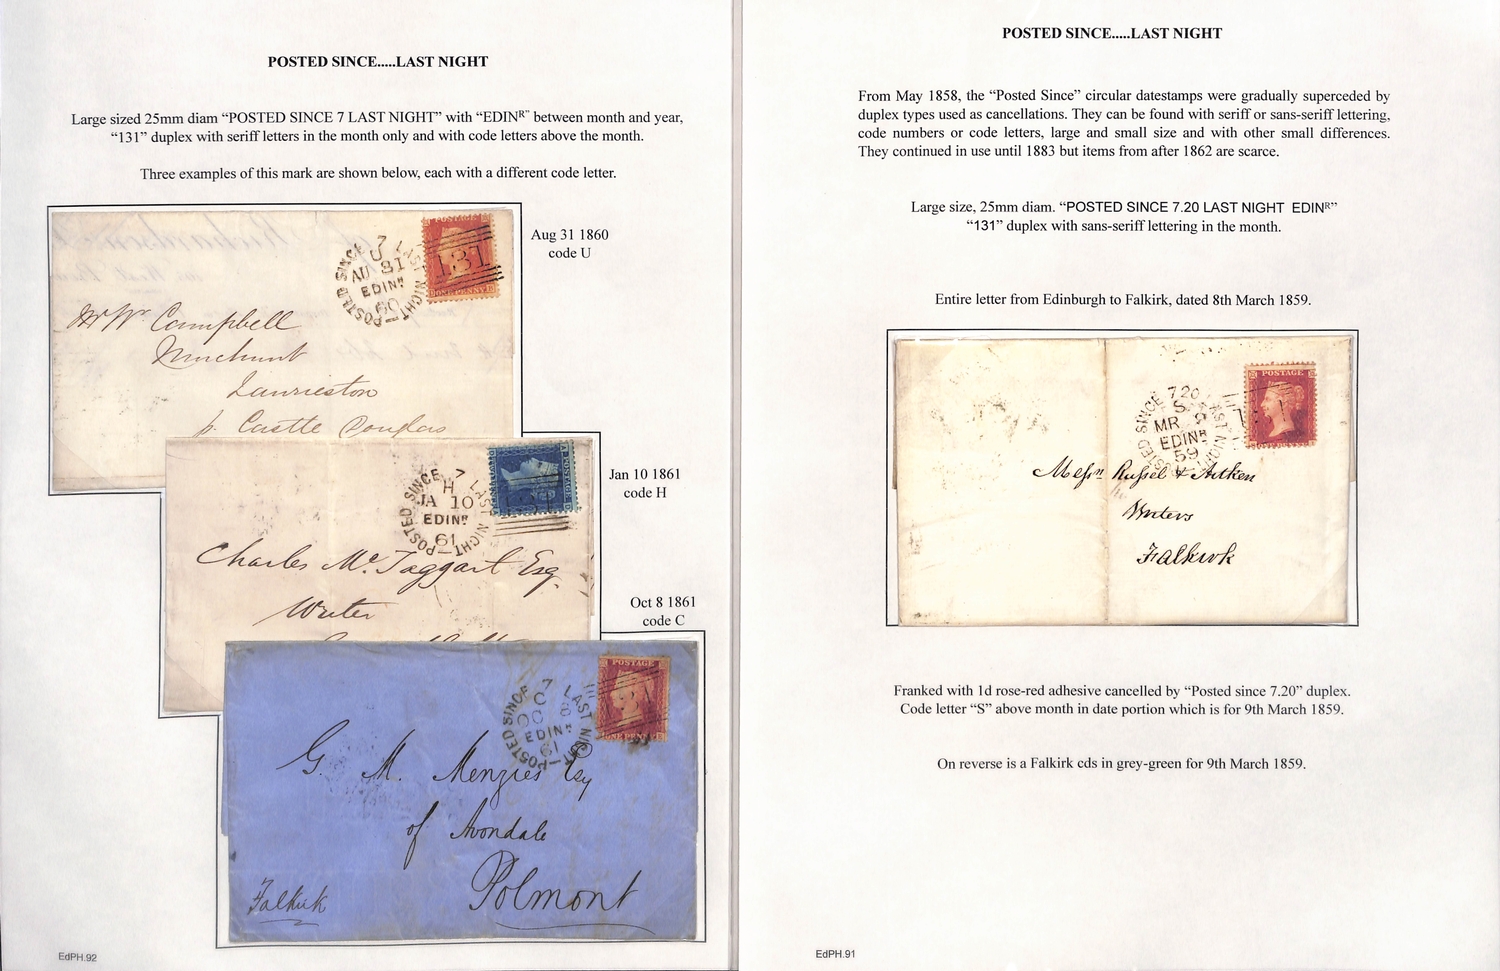 POSTED SINCE.....LAST NIGHT
Large sized 25mm diam “POSTED SINCE 7 LAST NIGHT” with “EDINR” between month and year,
“131” duplex with seriff letters in the month only and with code letters above the month.
Three examples of this mark are shown below, each with a different code letter.
Aug 31 1860
code U
POSTED SINCE 7 LAST NIGHT
U
AU 31
EDINR
60
131
ONE PENNY
Mr Wm Campbell
Merchant
Laurieston
p. Castle Douglas
Jan 10 1861
code H
POSTED SINCE 7 LAST NIGHT
H
JA 10
EDINR
61
131
POSTAGE
Charles McTaggart Esq.
Writer
Oct 8 1861
code C
POSTED SINCE 7 LAST NIGHT
C
OC 8
EDINR
61
POSTAGE
131
ONE PENNY
G. M. Menzies Esq
of Avondale
Polmont
Falkirk
EdPH.92
POSTED SINCE.....LAST NIGHT
From May 1858, the “Posted Since” circular datestamps were gradually superceded by
duplex types used as cancellations. They can be found with seriff or sans-seriff lettering,
code numbers or code letters, large and small size and with other small differences.
They continued in use until 1883 but items from after 1862 are scarce.
Large size, 25mm diam. “POSTED SINCE 7.20 LAST NIGHT EDINR”
“131” duplex with sans-seriff lettering in the month.
Entire letter from Edinburgh to Falkirk, dated 8th March 1859.
POSTED SINCE 7.20 LAST NIGHT
S
MR 9
EDINR
59
POSTAGE
Messrs Russel & Aitken
Writers
Falkirk
Franked with 1d rose-red adhesive cancelled by “Posted since 7.20” duplex.
Code letter “S” above month in date portion which is for 9th March 1859.
On reverse is a Falkirk cds in grey-green for 9th March 1859.
EdPH.91